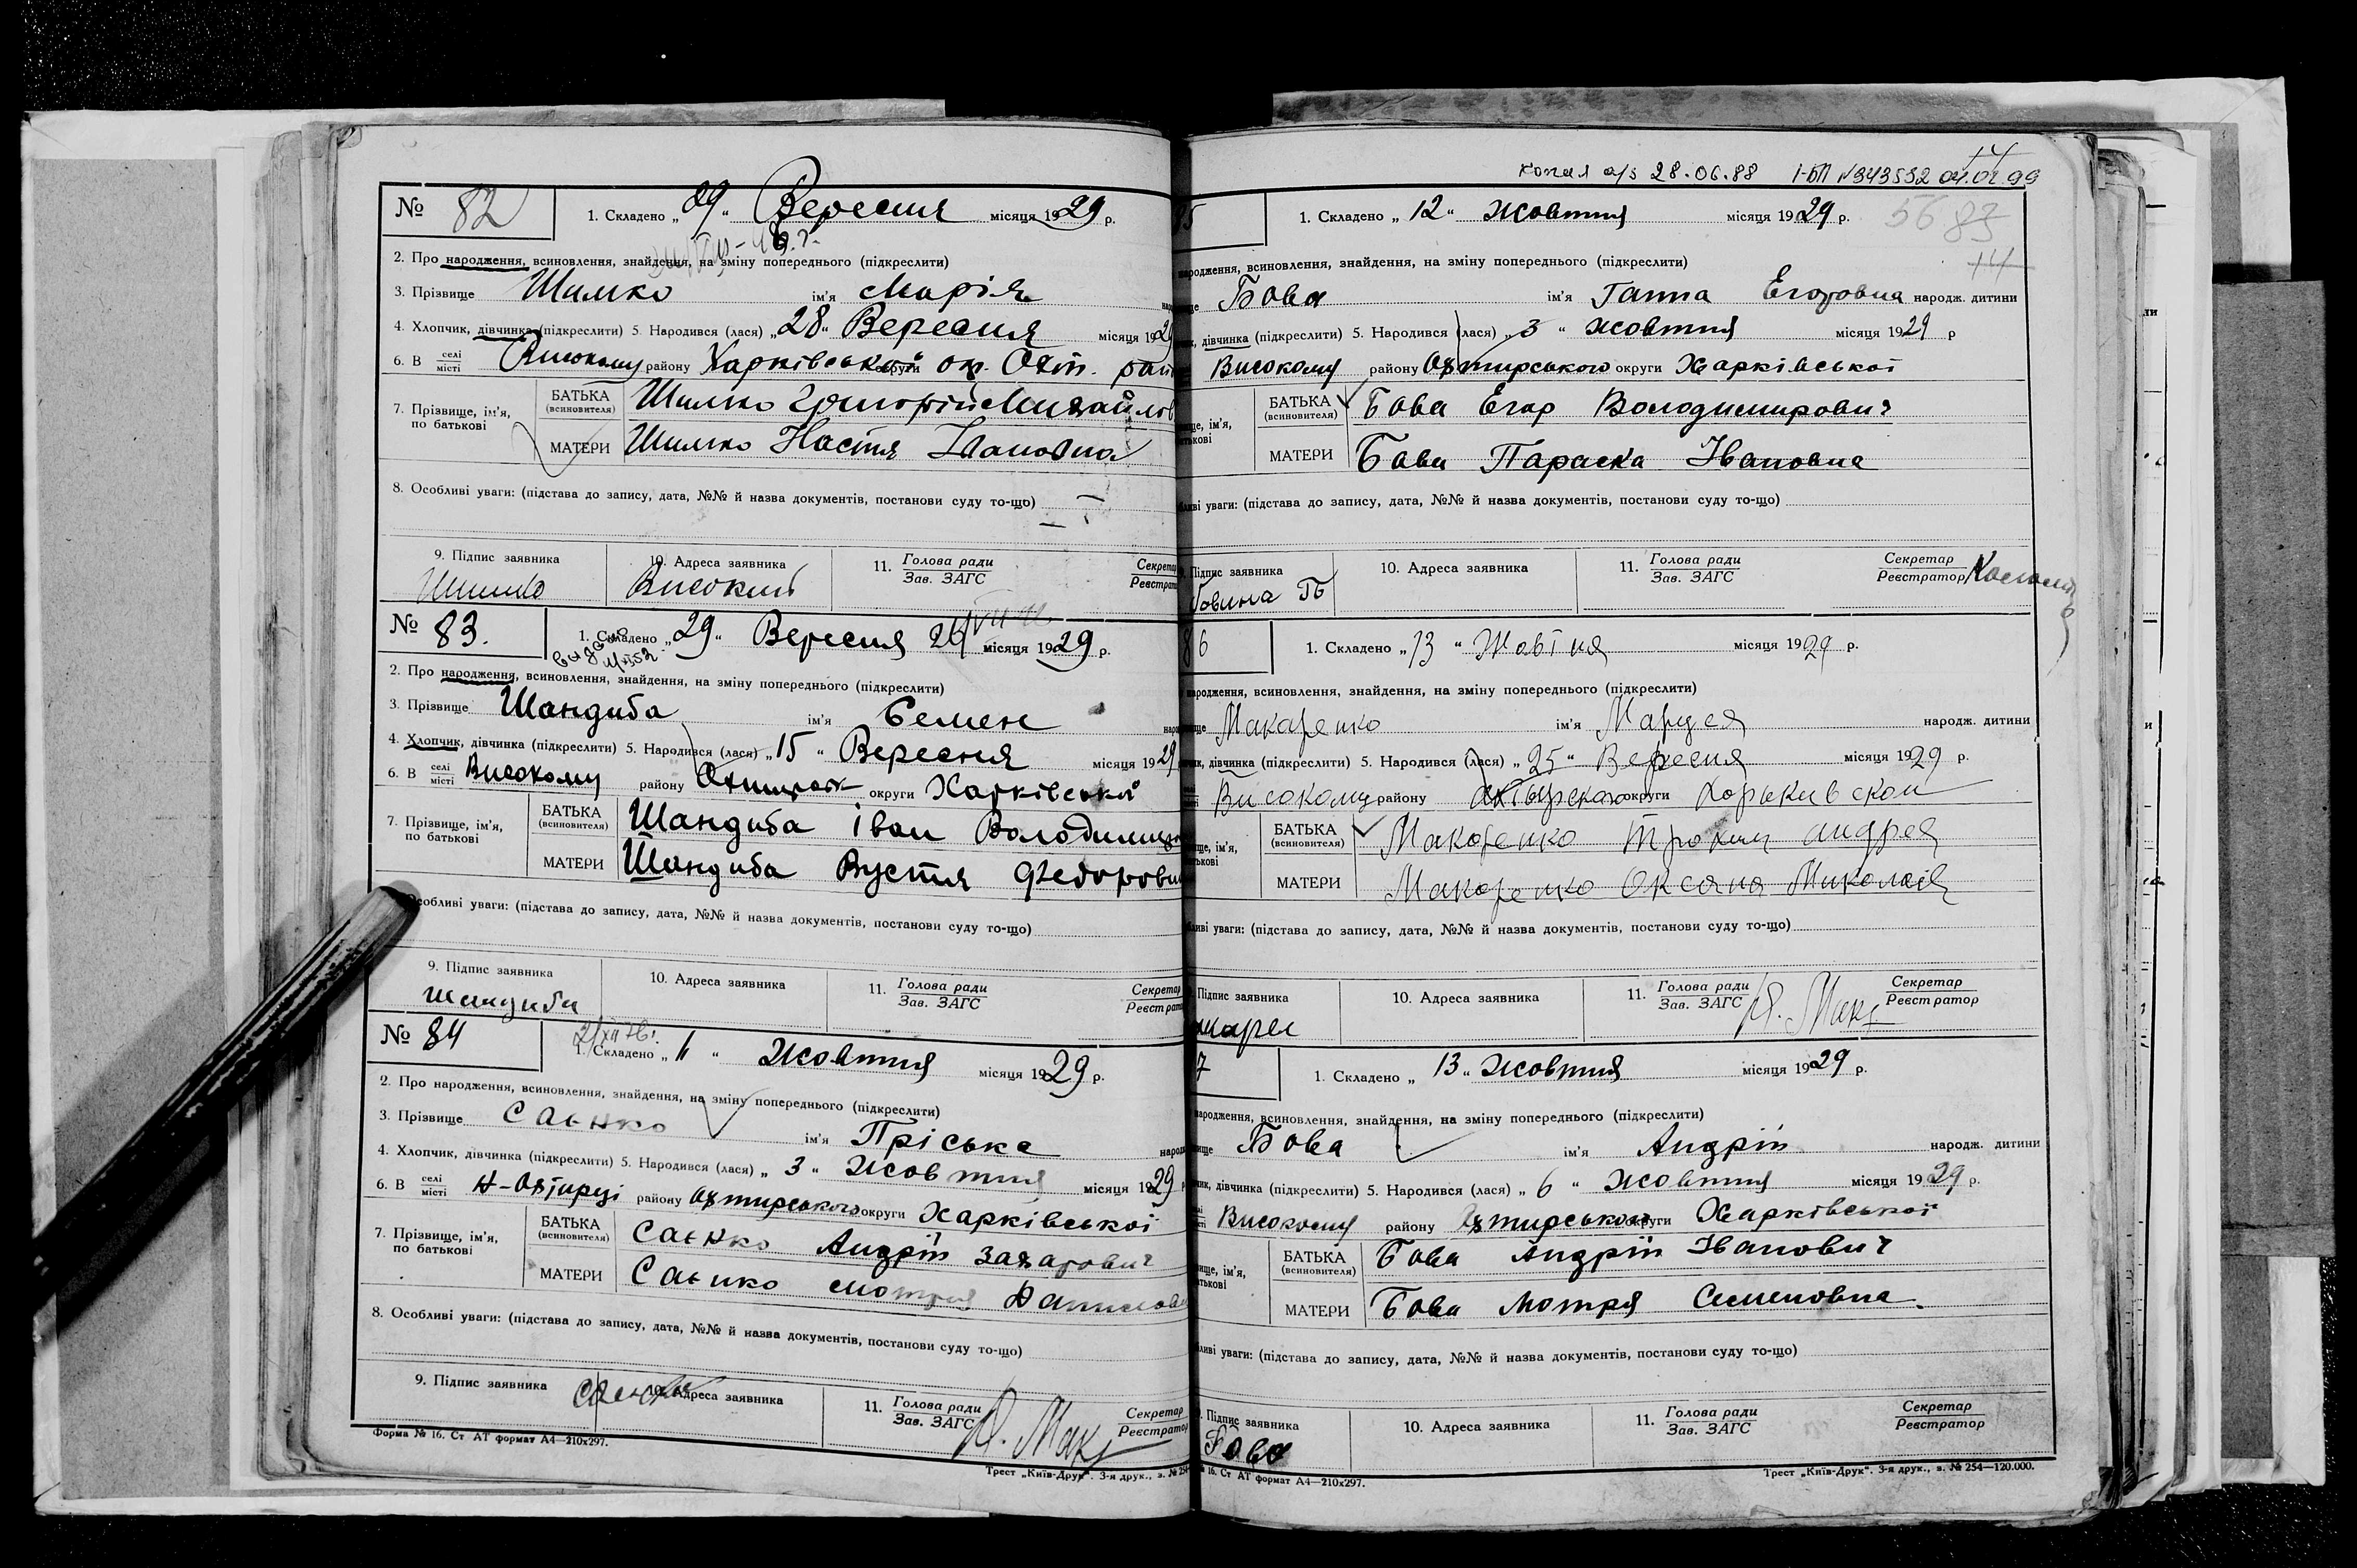 № 82
1. Складено „ 29 “ Вересня місяця 1929 р.
2. Про народження, всиновлення, знайдення, на зміну попереднього (підкреслити)
3. Прізвище Шимко ім'я Марія
4. Хлопчик, дівчинка (підкреслити) 5. Народився (лася) „ 28 “ Вересня місяця 1929
6. В селі місті Високому району Харківської округи ок. Охт. рай
7. Прізвище, ім'я, по батькові
БАТЬКА (всиновителя) Шимко Григорій Михайлов
МАТЕРИ Шимко Настя Івановна
8. Особливі уваги: (підстава до запису, дата, №№ й назва документів, постанови суду то-що)
9. Підпис заявника 10. Адреса заявника 11. Голова ради Зав. ЗАГС Секретар Реєстрат
Шимко Високий
№ 83.
1. Складено „ 29 “ Вересня місяця 1929 р.
2. Про народження, всиновлення, знайдення, на зміну попереднього (підкреслити)
3. Прізвище Шандиба ім'я Семен
4. Хлопчик, дівчинка (підкреслити) 5. Народився (лася) „ 15 “ Вересня місяця 1929
6. В селі місті Високому району округи Харківської
7. Прізвище, ім'я, по батькові
БАТЬКА (всиновителя) Шандиба Іван Володимиро
МАТЕРИ Шандиба Вустя Федоровн
Особливі уваги: (підстава до запису, дата, №№ й назва документів, постанови суду то-що)
9. Підпис заявника 10. Адреса заявника 11. Голова ради Зав. ЗАГС Секретар Реєстрат
Шандиба
№ 84
1. Складено „ 11 “ Жовтня місяця 1929 р.
2. Про народження, всиновлення, знайдення, на зміну попереднього (підкреслити)
3. Прізвище Саєнко ім'я Пріська
4. Хлопчик, дівчинка (підкреслити) 5. Народився (лася) „ 3 “ Жовтня місяця 1929
6. В селі місті Н-Охтирці району Охтирського округи Харківської
7. Прізвище, ім'я, по батькові
БАТЬКА (всиновителя) Саєнко Андрій Захарович
МАТЕРИ Саєнко Мотря Даниловн
8. Особливі уваги: (підстава до запису, дата, №№ й назва документів, постанови суду то-що)
9. Підпис заявника 10. Адреса заявника 11. Голова ради Зав. ЗАГС Секретар Реєстратор
Саєнко
Форма № 16. Ст АТ формат А4—210х297.
Трест „Київ-Друк“. 3-я друк., з. № 254
Копия а/з 28.06.88 I-БП №343552
5
1. Складено „ 12 “ Жовтня місяця 1929 р.
народження, всиновлення, знайдення, на зміну попереднього (підкреслити)
Бова ім'я Ганна Егоровна народж. дитини
дівчинка (підкреслити) 5. Народився (лася) „ 3 “ Жовтня місяця 1929 р
Високому району Охтирського округи Харківської
БАТЬКА (всиновителя) Бова Егор Володимирович
МАТЕРИ Бова Параска Івановна
уваги: (підстава до запису, дата, №№ й назва документів, постанови суду то-що)
Підпис заявника 10. Адреса заявника 11. Голова ради Зав. ЗАГС Секретар Реєстратор
86
1. Складено „ 13 “ Жовтня місяця 1929 р.
народження, всиновлення, знайдення, на зміну попереднього (підкреслити)
Макаренко ім'я Маруся народж. дитини
дівчинка (підкреслити) 5. Народився (лася) „ 25 “ Вересня місяця 1929 р.
Високому району Ахтырского округи Харькивской
БАТЬКА (всиновителя) Макаренко Трохим Андрея
МАТЕРИ Макаренко Оксана Миколаів
уваги: (підстава до запису, дата, №№ й назва документів, постанови суду то-що)
Підпис заявника 10. Адреса заявника 11. Голова ради Зав. ЗАГС Секретар Реєстратор
7
1. Складено „ 13 “ Жовтня місяця 1929 р.
народження, всиновлення, знайдення, на зміну попереднього (підкреслити)
Бова ім'я Андрій народж. дитини
дівчинка (підкреслити) 5. Народився (лася) „ 6 “ Жовтня місяця 1929 р.
Високому району Охтирського округи Харківської
БАТЬКА (всиновителя) Бова Андрій Іванович
МАТЕРИ Бова Мотря Семеновна.
уваги: (підстава до запису, дата, №№ й назва документів, постанови суду то-що)
Підпис заявника 10. Адреса заявника 11. Голова ради Зав. ЗАГС Секретар Реєстратор
Бова
16. Ст АТ формат А4—210х297.
Трест „Київ-Друк“. 3-я друк., з. № 254—120.000.